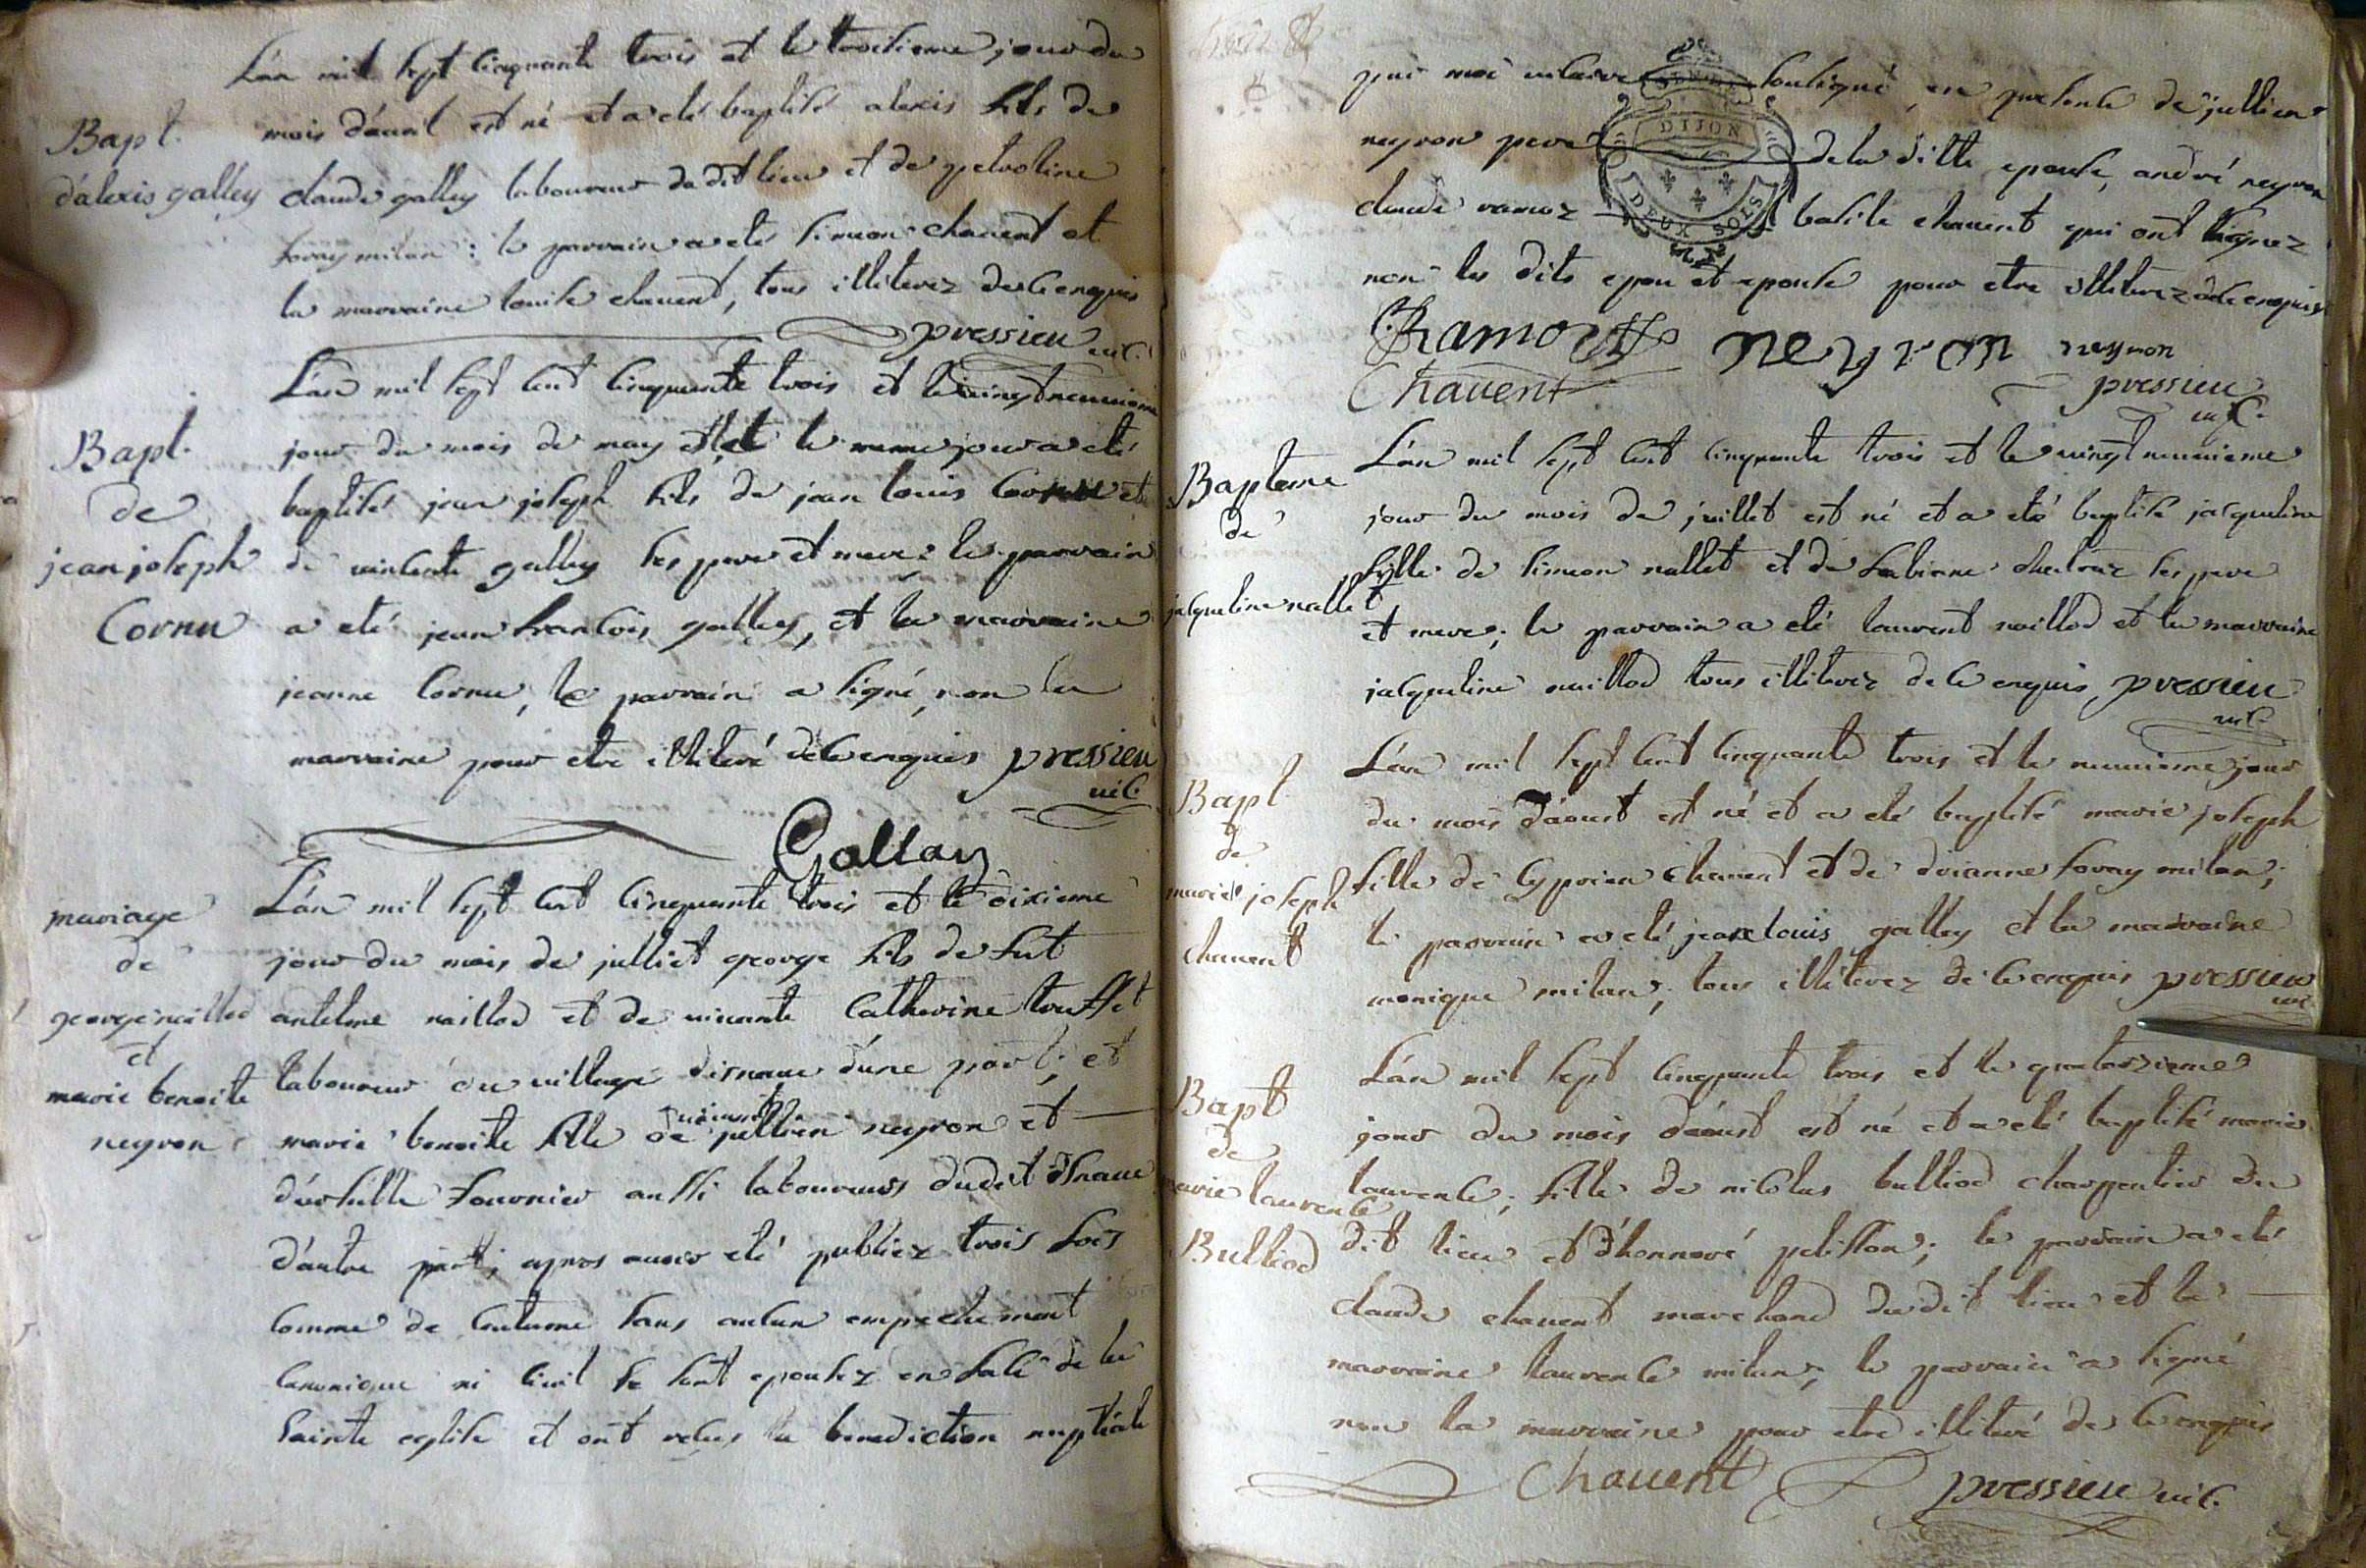 L'an mil sept cinquante trois et le troisieme jour du
Bapt.
d'alexis galley
mois d'avril est né et a eté baptisé alexis fils de
claude galley laboureur du dit lieu et de petroline
foray milan : le parrain a eté simeon chavent et
la marraine louise chavent, tous illiterez de ce enquis
pressieu vic.
L'an mil sept cent cinquante trois et le vingt neuvieme
Bapt.
de
jean joseph
Cornu
jour du mois de may et le meme jour a eté
baptisé jean joseph fils de jean louis Cornu et
de vincente galley ses pere et mere ; le parrain
a eté jean francois galley, et la marraine
jeanne Cornu, le parrain a signé, non la
marraine pour etre illiteré de ce enquis pressieu
vic.
Gallay
mariage
de
george naillod
et
marie benoite
neyron
L'an mil sept cent cinquante trois et le dixieme
jour du mois de julliet george fils de fut
antelme naillod et de vivante Catherine
laboureur du village d'isnave d'une part ; et
marie benoite fille de jullien neyron et
vivant
fournier aussi laboureurs dudit
d'autre part ; apres avoir eté publiez trois fois
comme de coutume sans aucun empechement
canonique ni civil se sont epousez en face de la
Sainte eglise et ont receu la benediction nuptiale
par moi vicaire soussigné, en presence de jullien
neyron pere de la ditte epouse, andré neyron
claude ramoz basile chavent qui ont signez
non les dits epou et epouse pour etre illiterez de ce enquis
DIJON
DEUX SOLS
C. Ramoz neyron neyron
Chavent pressieu
vic.
Bapteme
de
jacqueline nallet
L'an mil sept cent cinquante trois et le vingt neuvieme
jour du mois de juillet est né et a eté baptisé jacqueline
fylle de simeon nallet et de fabiane ses pere
et mere ; le parrain a eté laurent naillod et la marraine
jacqueline naillod tous illiterez de ce enquis pressieu
vic.
Bapt
de
marie joseph
chavent
L'an mil sept cent cinquante trois et le neuvieme jour
du mois d'aoust est né et a eté baptisé marie joseph
fille de Cyprien chavent et de drianne foray milan ;
le parrain a eté jean louis galley et la marraine
monique milan ; tous illiterez de ce enquis pressieu
vic
Bapt
de
marie laurence
Bulliod
L'an mil sept cinquante trois et le quatorzieme
jour du mois d'aoust est né et a eté baptisé marie
laurence ; fille de nicolas bulliod charpentier du
dit lieu et d'honnoré pelisson ; le parrain a eté
claude chavent marchand du dit lieu et la
marraine laurence milan ; le parrain a signé
non la marraine pour etre illiteré de ce enquis
Chavent pressieu vic.